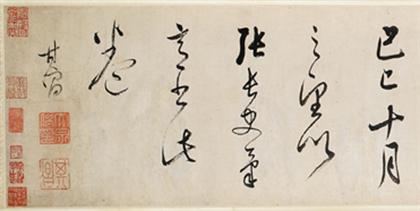 己巳十月
之望以
張長史筆
意書此
卷
其昌